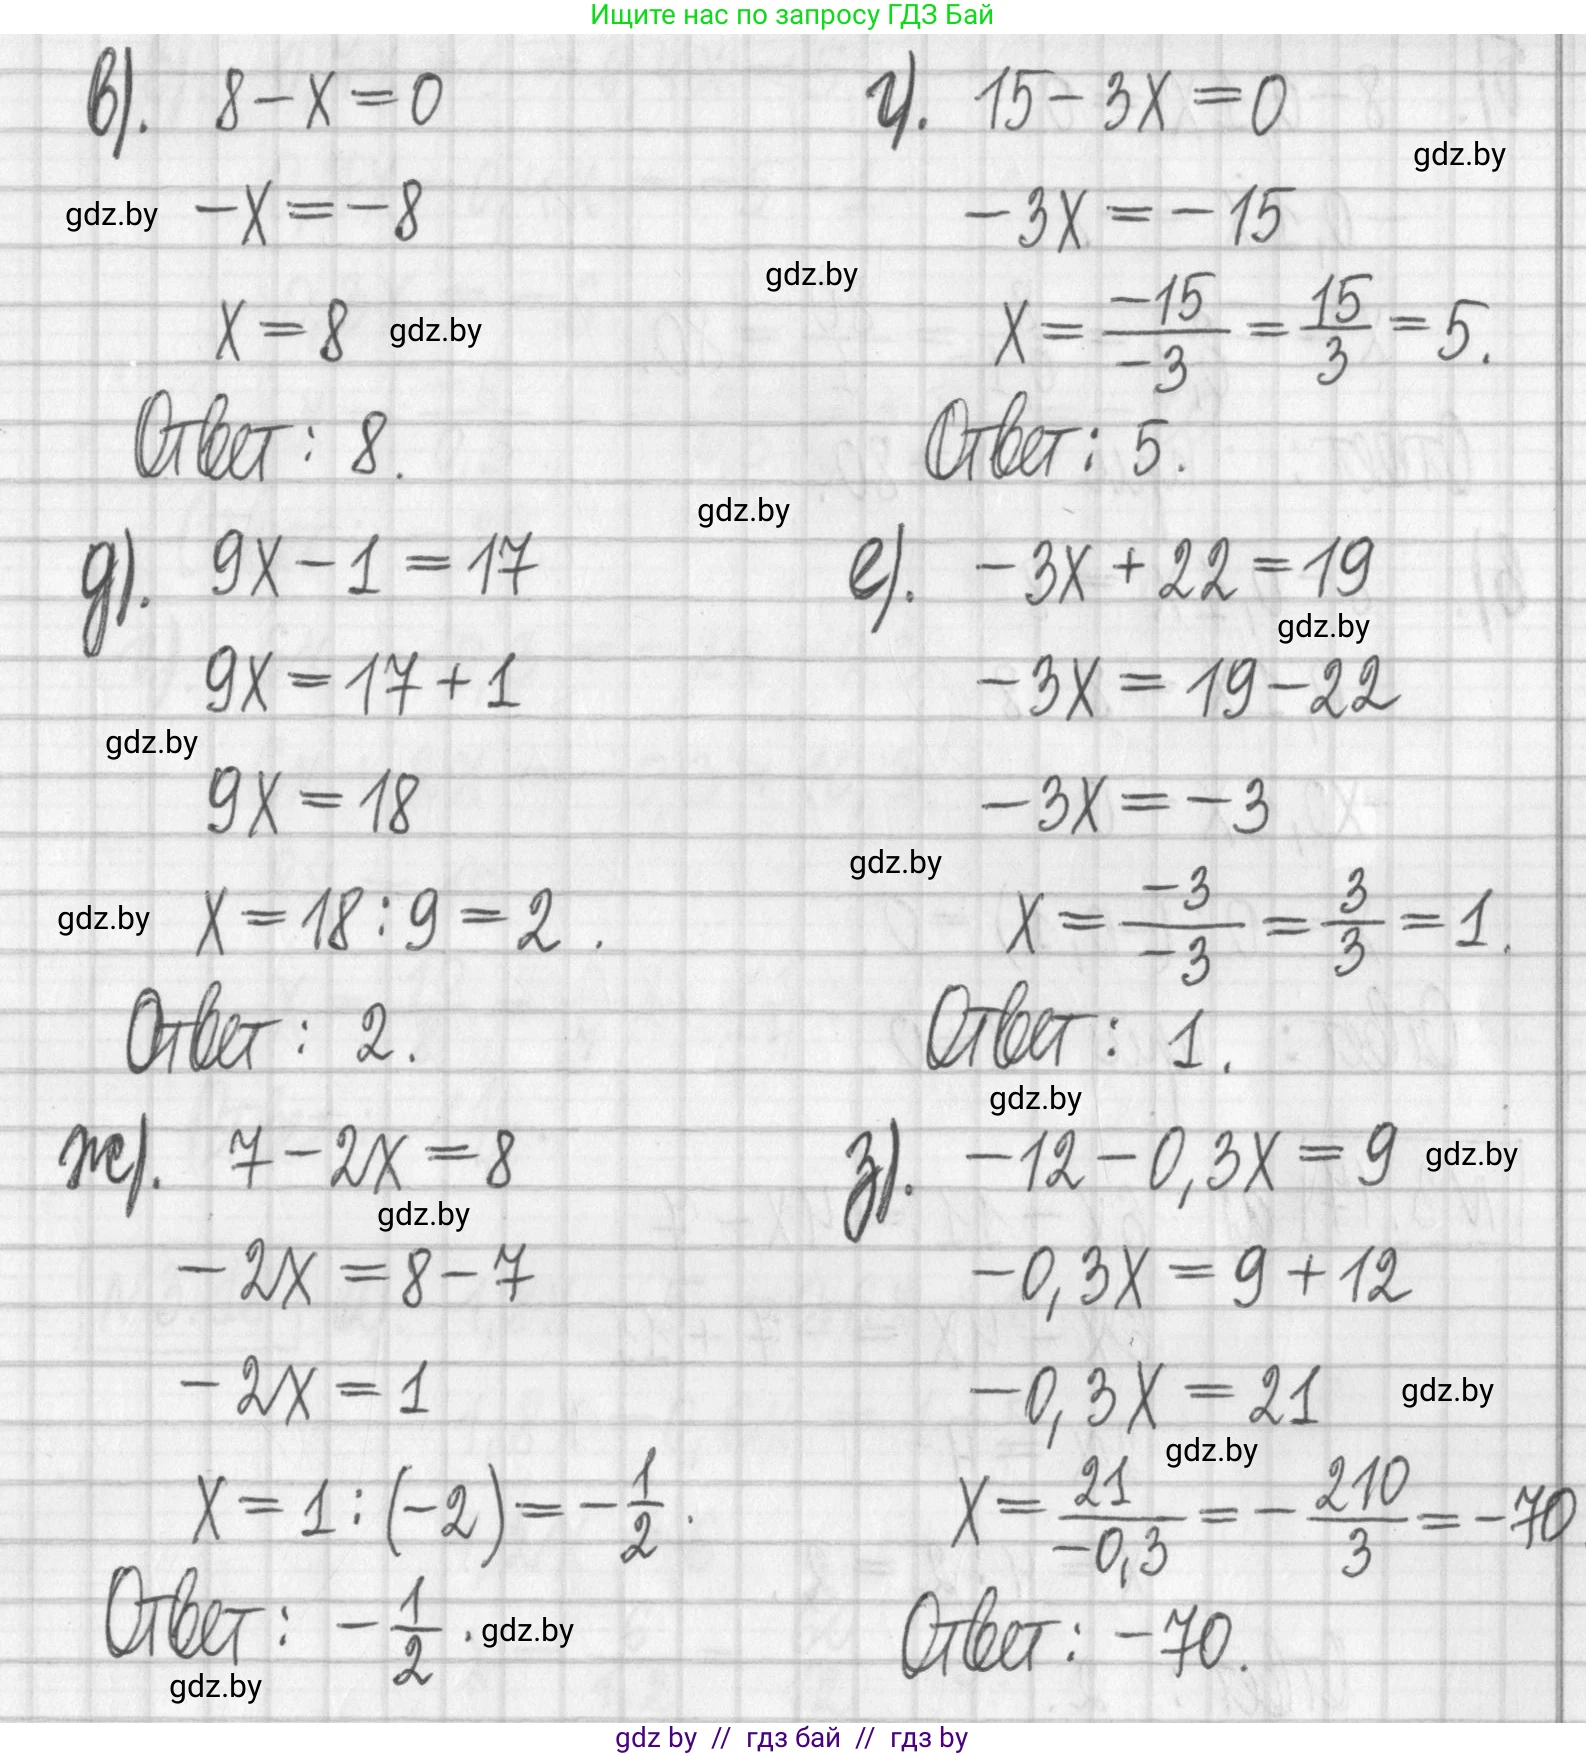 Ищите нас по запросу ГДЗ Бай
в). 8 - x = 0
gdz.by -x = -8
x = 8 gdz.by
Ответ: 8.
г). 15 - 3x = 0
gdz.by
-3x = -15
gdz.by
x = -15/-3 = 15/3 = 5.
Ответ: 5.
gdz.by
д). 9x - 1 = 17
9x = 17 + 1
gdz.by
9x = 18
gdz.by x = 18 : 9 = 2.
Ответ: 2.
е). -3x + 22 = 19
gdz.by
-3x = 19 - 22
-3x = -3
gdz.by
x = -3/-3 = 3/3 = 1.
Ответ: 1.
gdz.by
ж). 7 - 2x = 8
gdz.by
-2x = 8 - 7
-2x = 1
x = 1 : (-2) = -1/2.
Ответ: -1/2. gdz.by
gdz.by
з). -12 - 0,3x = 9 gdz.by
-0,3x = 9 + 12
-0,3x = 21 gdz.by
gdz.by
x = 21/-0,3 = -210/3 = -70.
Ответ: -70.
gdz by // гдз бай // гдз by